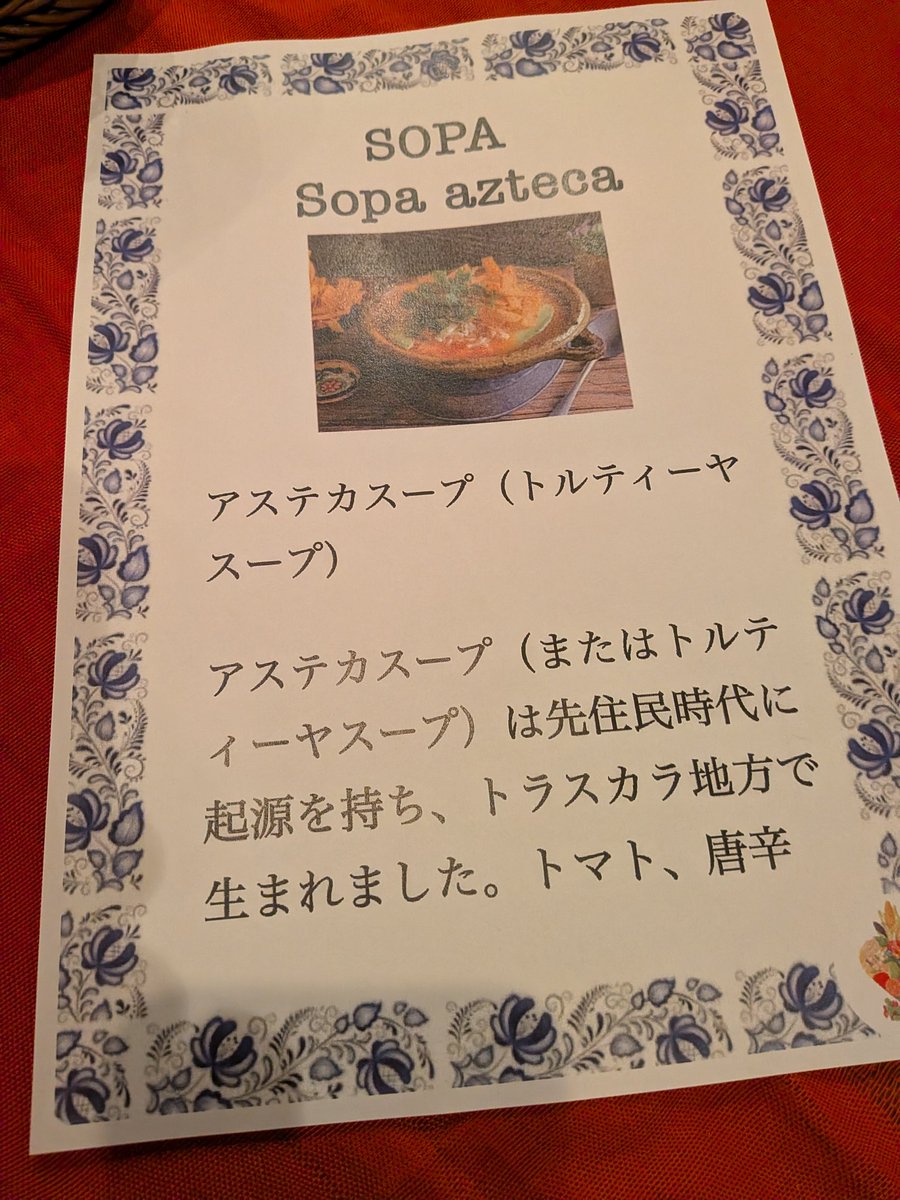 SOPA
Sopa azteca
アステカスープ（トルティーヤ
スープ）
アステカスープ（またはトルテ
ィーヤスープ）は先住民時代に
起源を持ち、トラスカラ地方で
生まれました。トマト、唐辛